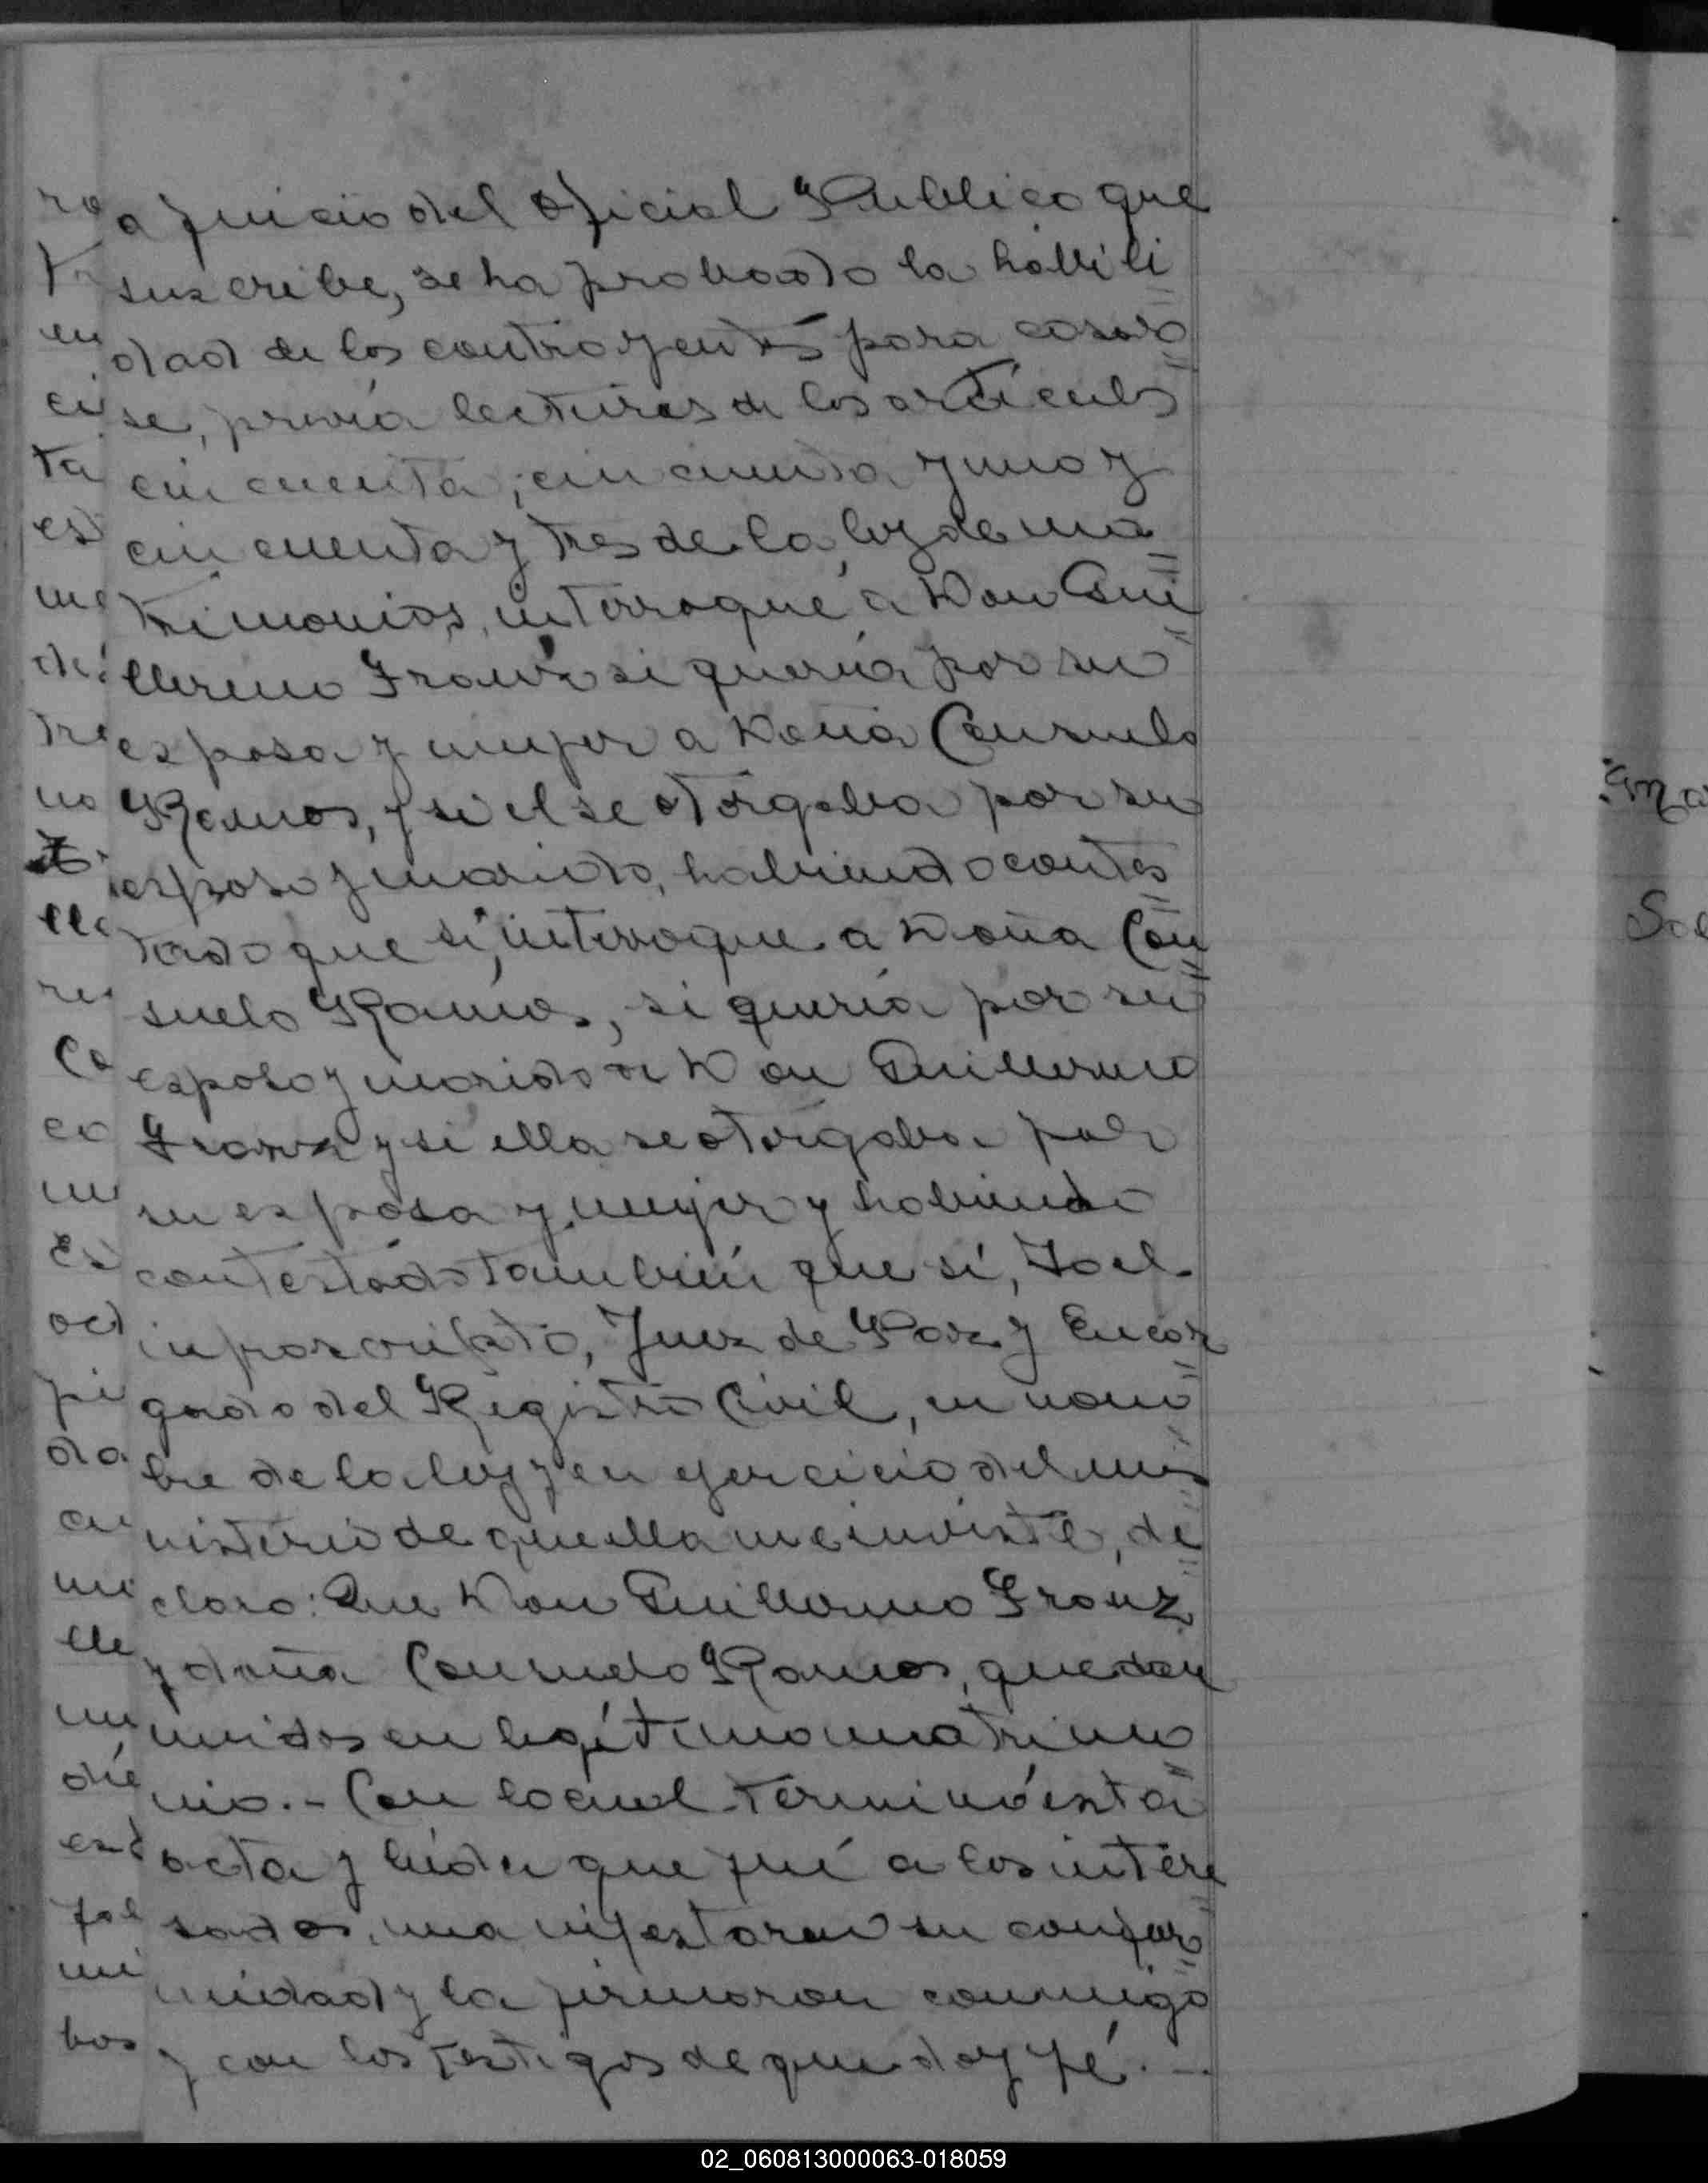 a juicio del Oficial Publico que
suscribe, se ha probado la habili
dad de los contrayentes para casar
se, previa lecturas de los artículos
cincuenta, cincuenta y uno y
cincuenta y tres de la ley de ma
trimonios, interrogué a Don Gui
llermo Franz si quería por su
esposa y mujer a Doña Consuelo
Ramos, y si el se otorgaba por su
esposo y marido, habiendo contes
tado que si, interrogue a Doña Con
suelo Ramos, si quería por su
esposo y marido a Don Guillermo
Franz y si ella se otorgaba por
su esposa y mujer y habiendo
contestado también que sí, Yo el
infrascripto, Juez de Paz y Encar
gado del Registro Civil, en nom
bre de la ley y en ejercicio del mi
nisterio de que ella me inviste, de
claro: Que Don Guillermo Franz
y doña Consuelo Ramos, quedan
unidos en legítimo matrimo
nio.- Con lo cual terminó esta
acta y leída que fué a los intere
sados, manifestaron su confor
midad y la firmaron conmigo
y con los testigos de que doy fé.-
02_060813000063-018059